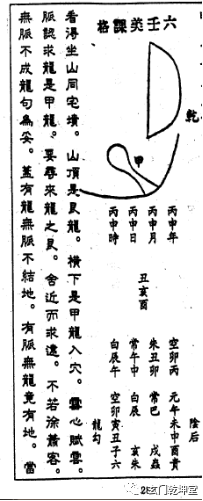 六壬美課格
乾
甲
陰后
丙申年
空卯丙
元午未申酉貴
丙申月
朱丑卯
常巳
丙申日
常午申
白辰
亥朱
丙申時
白辰午
空卯寅丑子六
龍勾
丑亥酉
看得坐山同宅墳。山頂是艮龍。橫下是甲龍入穴。雲心賦雲。
脈認求龍是甲龍。要尋來龍之艮。舍近而求遠。不若徐
客。
無脈不成龍句為妥。蓋有龍無脈不結地。有脈無龍竟有地。當
玄门乾坤堂